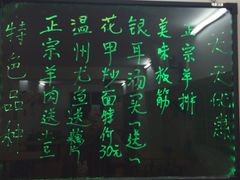 特色品种
正宗羊肉送
温州尤鱼送
花甲炒面特价30元
银耳汤买一送一
美味板筋
正宗羊排
天天优惠